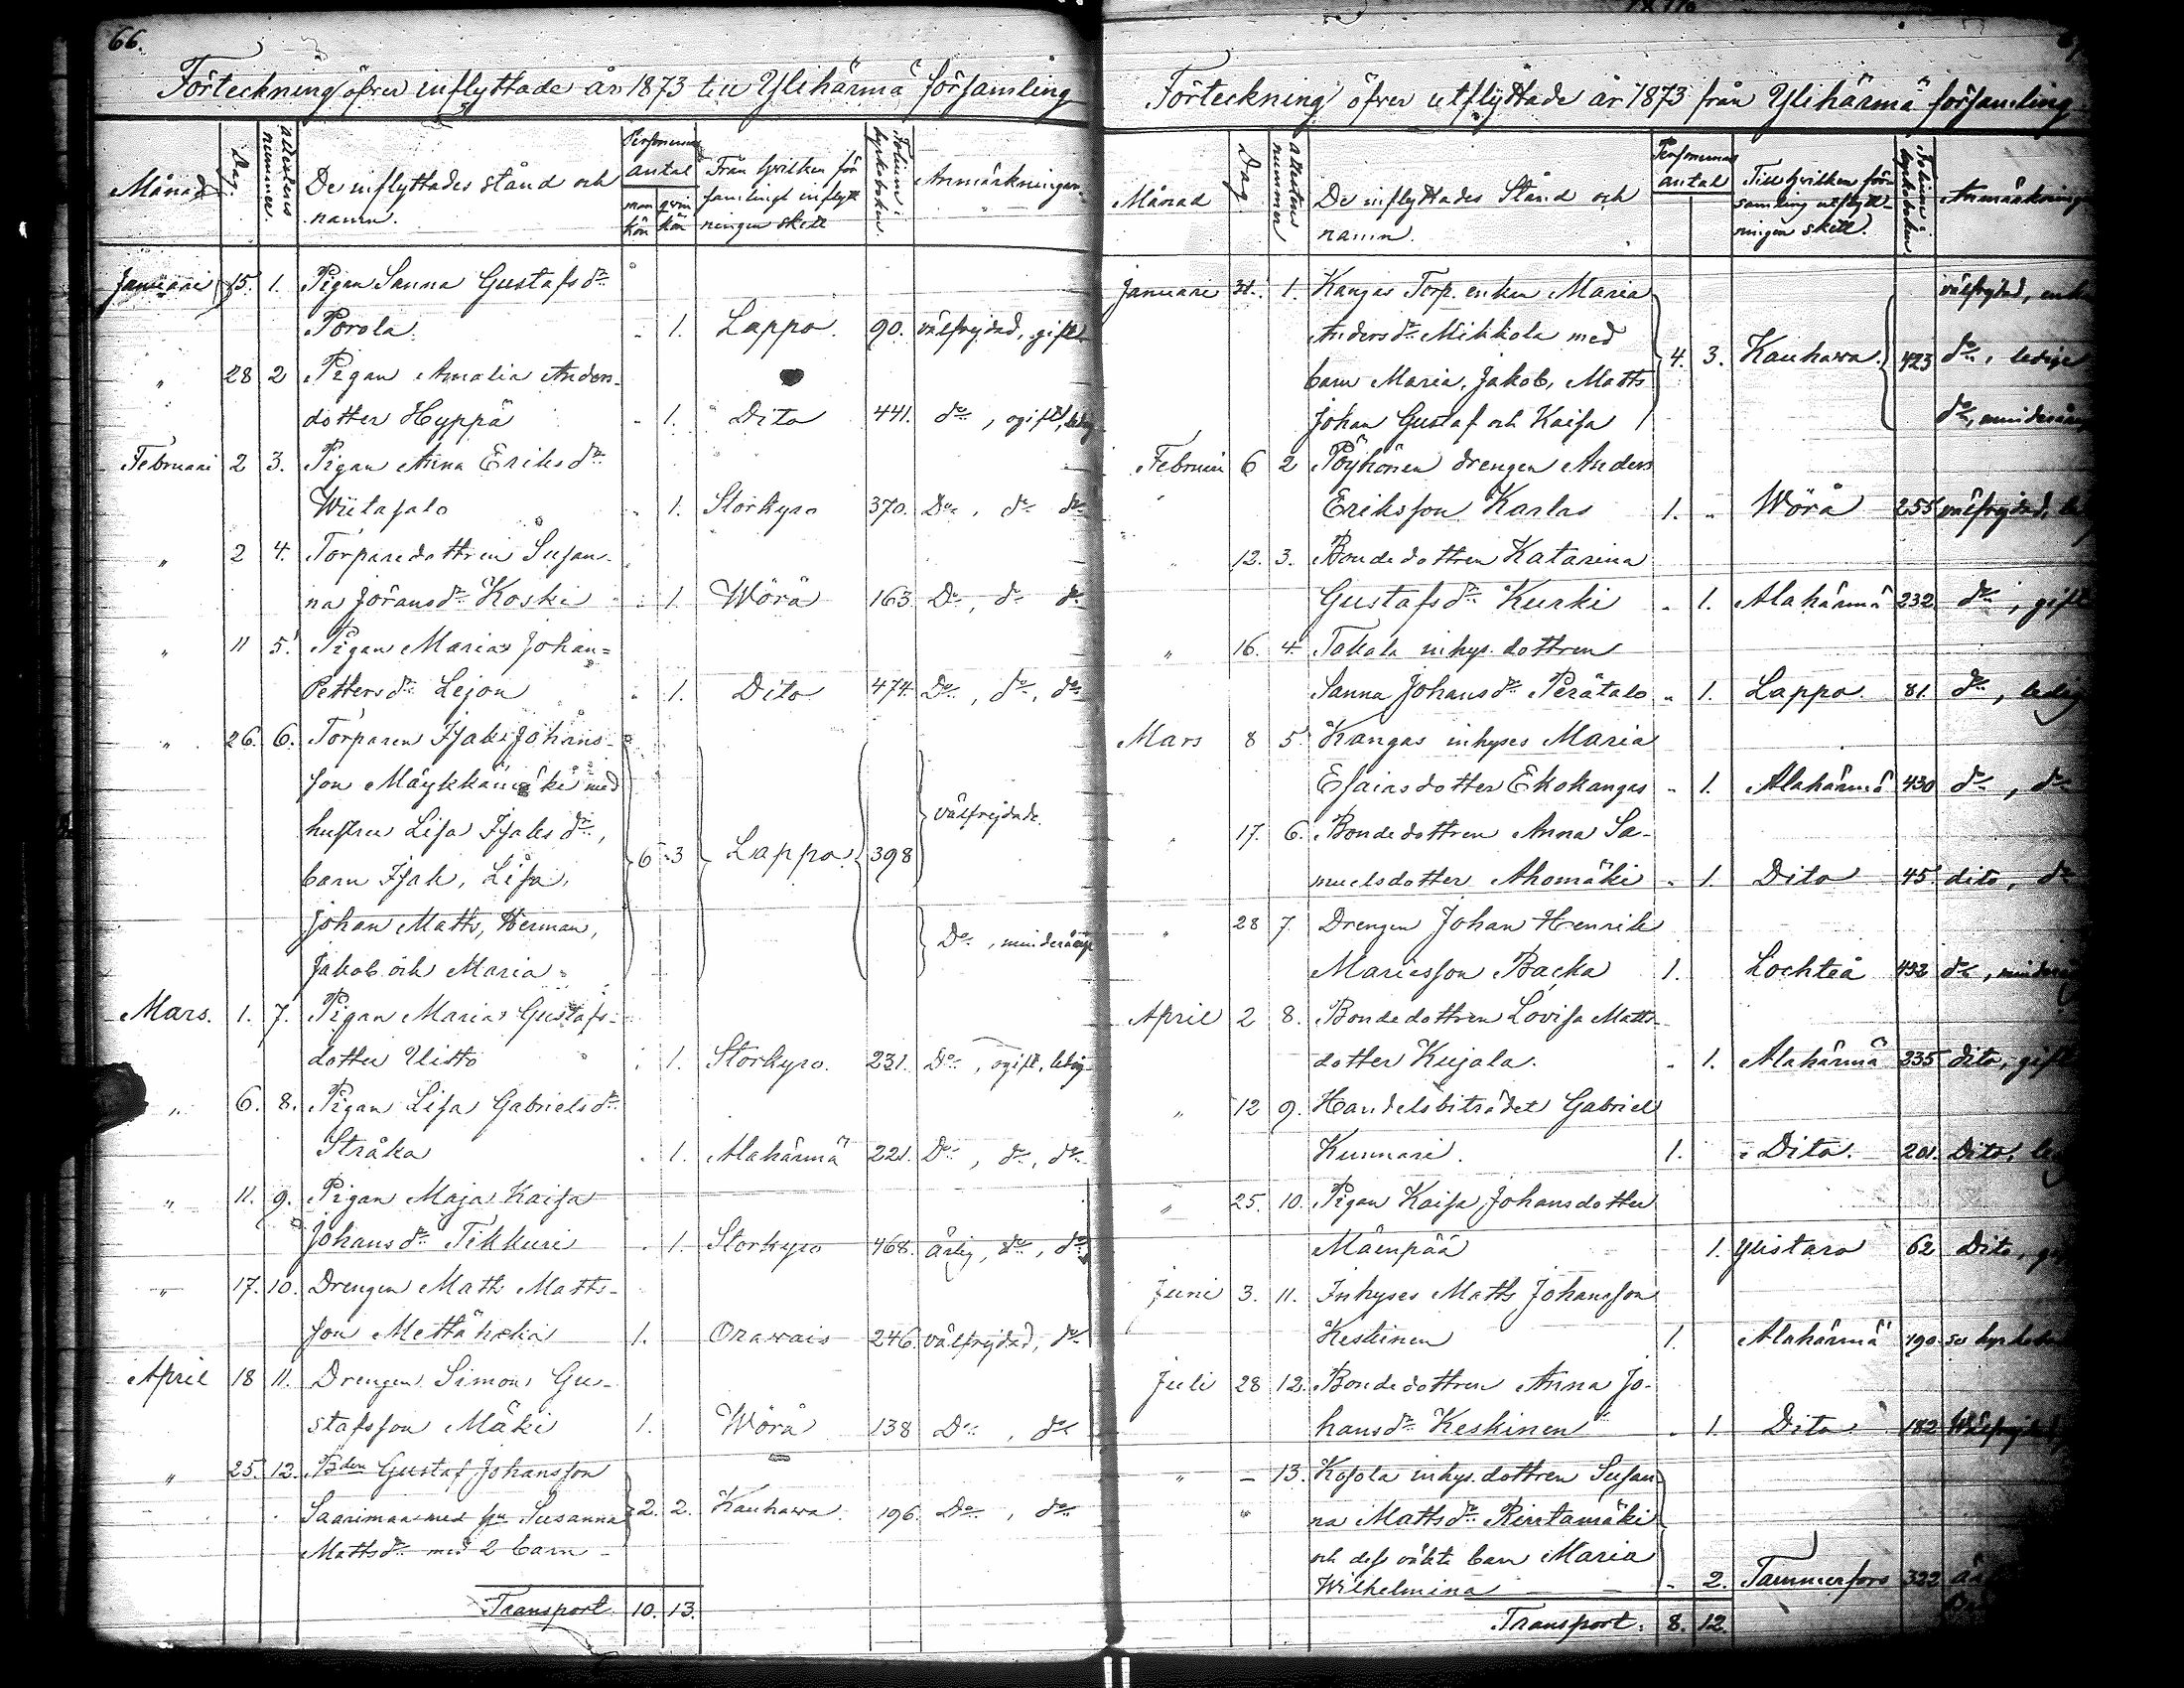 66.
Förteckning öfver inflyttade år 1873 till Ylihärmä församling
Månad
Dag.
attestens nummer.
De inflyttades stånd och namn.
Personernas antal
man kön
qvin kön
Från hvilken för
samling inflytt
ningen skett
Folium i kyrkoboken.
Anmärkningar.
Januari 15. 1. Pigan Sanna Gustafs dr
Porola - 1. Lappo 90. välfrejdad, gift
" 28 2 Pigan Amalia Anders-
dotter Hyppä - 1. Dito 441. do, ogift, ledig
Februari 2 3. Pigan Anna Eriks dr
Wiitasalo - 1. Storkyro 370. Do, do do
" 2 4. Torparedottren Susan-
na Jörans dr Koski - 1. Wörå 163 Do, do do
" 11 5. Pigan Maria Johan=
Petters dr Lejon - 1. Dito 474 Do, do, do
" 26. 6. Torparen Isak Johans-
son Mäykkämäki med
hustru Lisa Isaks dr, välfrejdade.
barn Isak, Lisa, 6 3 Lappo 398
Johan Matts, Herman,
Jakob och Maria Do, minderårige
Mars. 1. 7. Pigan Maria Gustafs-
dotter Uitto - 1. Storkyro. 231. Do, ogift, ledig
" 6. 8. Pigan Lisa Gabriels dr
Stråka - 1. Alahärmä 221. Do, do, do
" 11. 9. Pigan Maja Kaisa
Johans dr Tikkuri - 1. Storkyro 468. ärlig, do, do
" 17. 10. Drengen Matts Matts-
son 1. Orawais 246. välfrejdad, do
April 18 11. Drengen Simon Gu-
stafsson Mäki 1. Wörå 138 Do, do
" 25. 12. Bden Gustaf Johansson
Saarimaa med hu Susanna 2. 2. Kauhawa 196 Do, do
Matts dr med 2 barn
Transport 10. 13.
Förteckning öfver utflyttade år 1873 från Ylihärmä församling
Månad
Dag.
attestens nummer
De inflyttades Stånd och
namn.
Personernas antal
Till hvilken för-
samling utflytt-
ningen skett.
Folium i kyrkoboken
Anmärkningar
Januari 31. 1. Kangas Torp. enkan Maria välfrejdad, enka
Anders dr Mikkola med
barn Maria, Jakob, Matts 4. 3. Kauhawa. 423 do, ledige
Johan Gustaf och Kaisa do, minderårig
Februari 6 2 Pöyhönen drengen Anders
Eriksson Karlas 1. - Wörå 255 välfrejdad, le
12. 3. Bondedottren Katarina
Gustafs dr Kurki - 1. Alahärmä 232 do, gift
" 16. 4. Takala inhys. dottren
Sanna Johans dr Perätalo - 1. Lappo 81 do, ledig
Mars 8 5. Kangas inhyses Maria
Esaiasdotter Ekokangas - 1. Alahärmä 430 do, do
" 17. 6. Bondedottren Anna Sa-
muelsdotter Ahomäki - 1. Dito 45 dito, do
" 28 7. Drengen Johan Henrik
Mariesson Backa 1. Lochteå 432 do, minder
April 2 8. Bondedottren Lovisa Matts-
dotter Kujala. - 1. Alahärmä 235 dito, gift
" 12 9. Handelsbiträdet Gabriel
Kunnari. 1. Dito. 201. Dito, le
" 25. 10. Pigan Kaisa Johansdotter
Mäenpää 1. Ylistaro 62 Dito, g
Juni 3. 11. Inhyses Matts Johansson
Keskinen 1. Alahärmä 190. se kyrkobok
Juli 28 12. Bondedottren Anna Jo-
hans dr Keskinen - 1. Dito 182 Wälfrejdad
" - 13. Kosola inhys. dottren Susan-
" na Matts dr Rintamäki
och dess oäkta barn Maria
Wilhelmina - 2. Tammerfors 322
Transport. 8. 12.